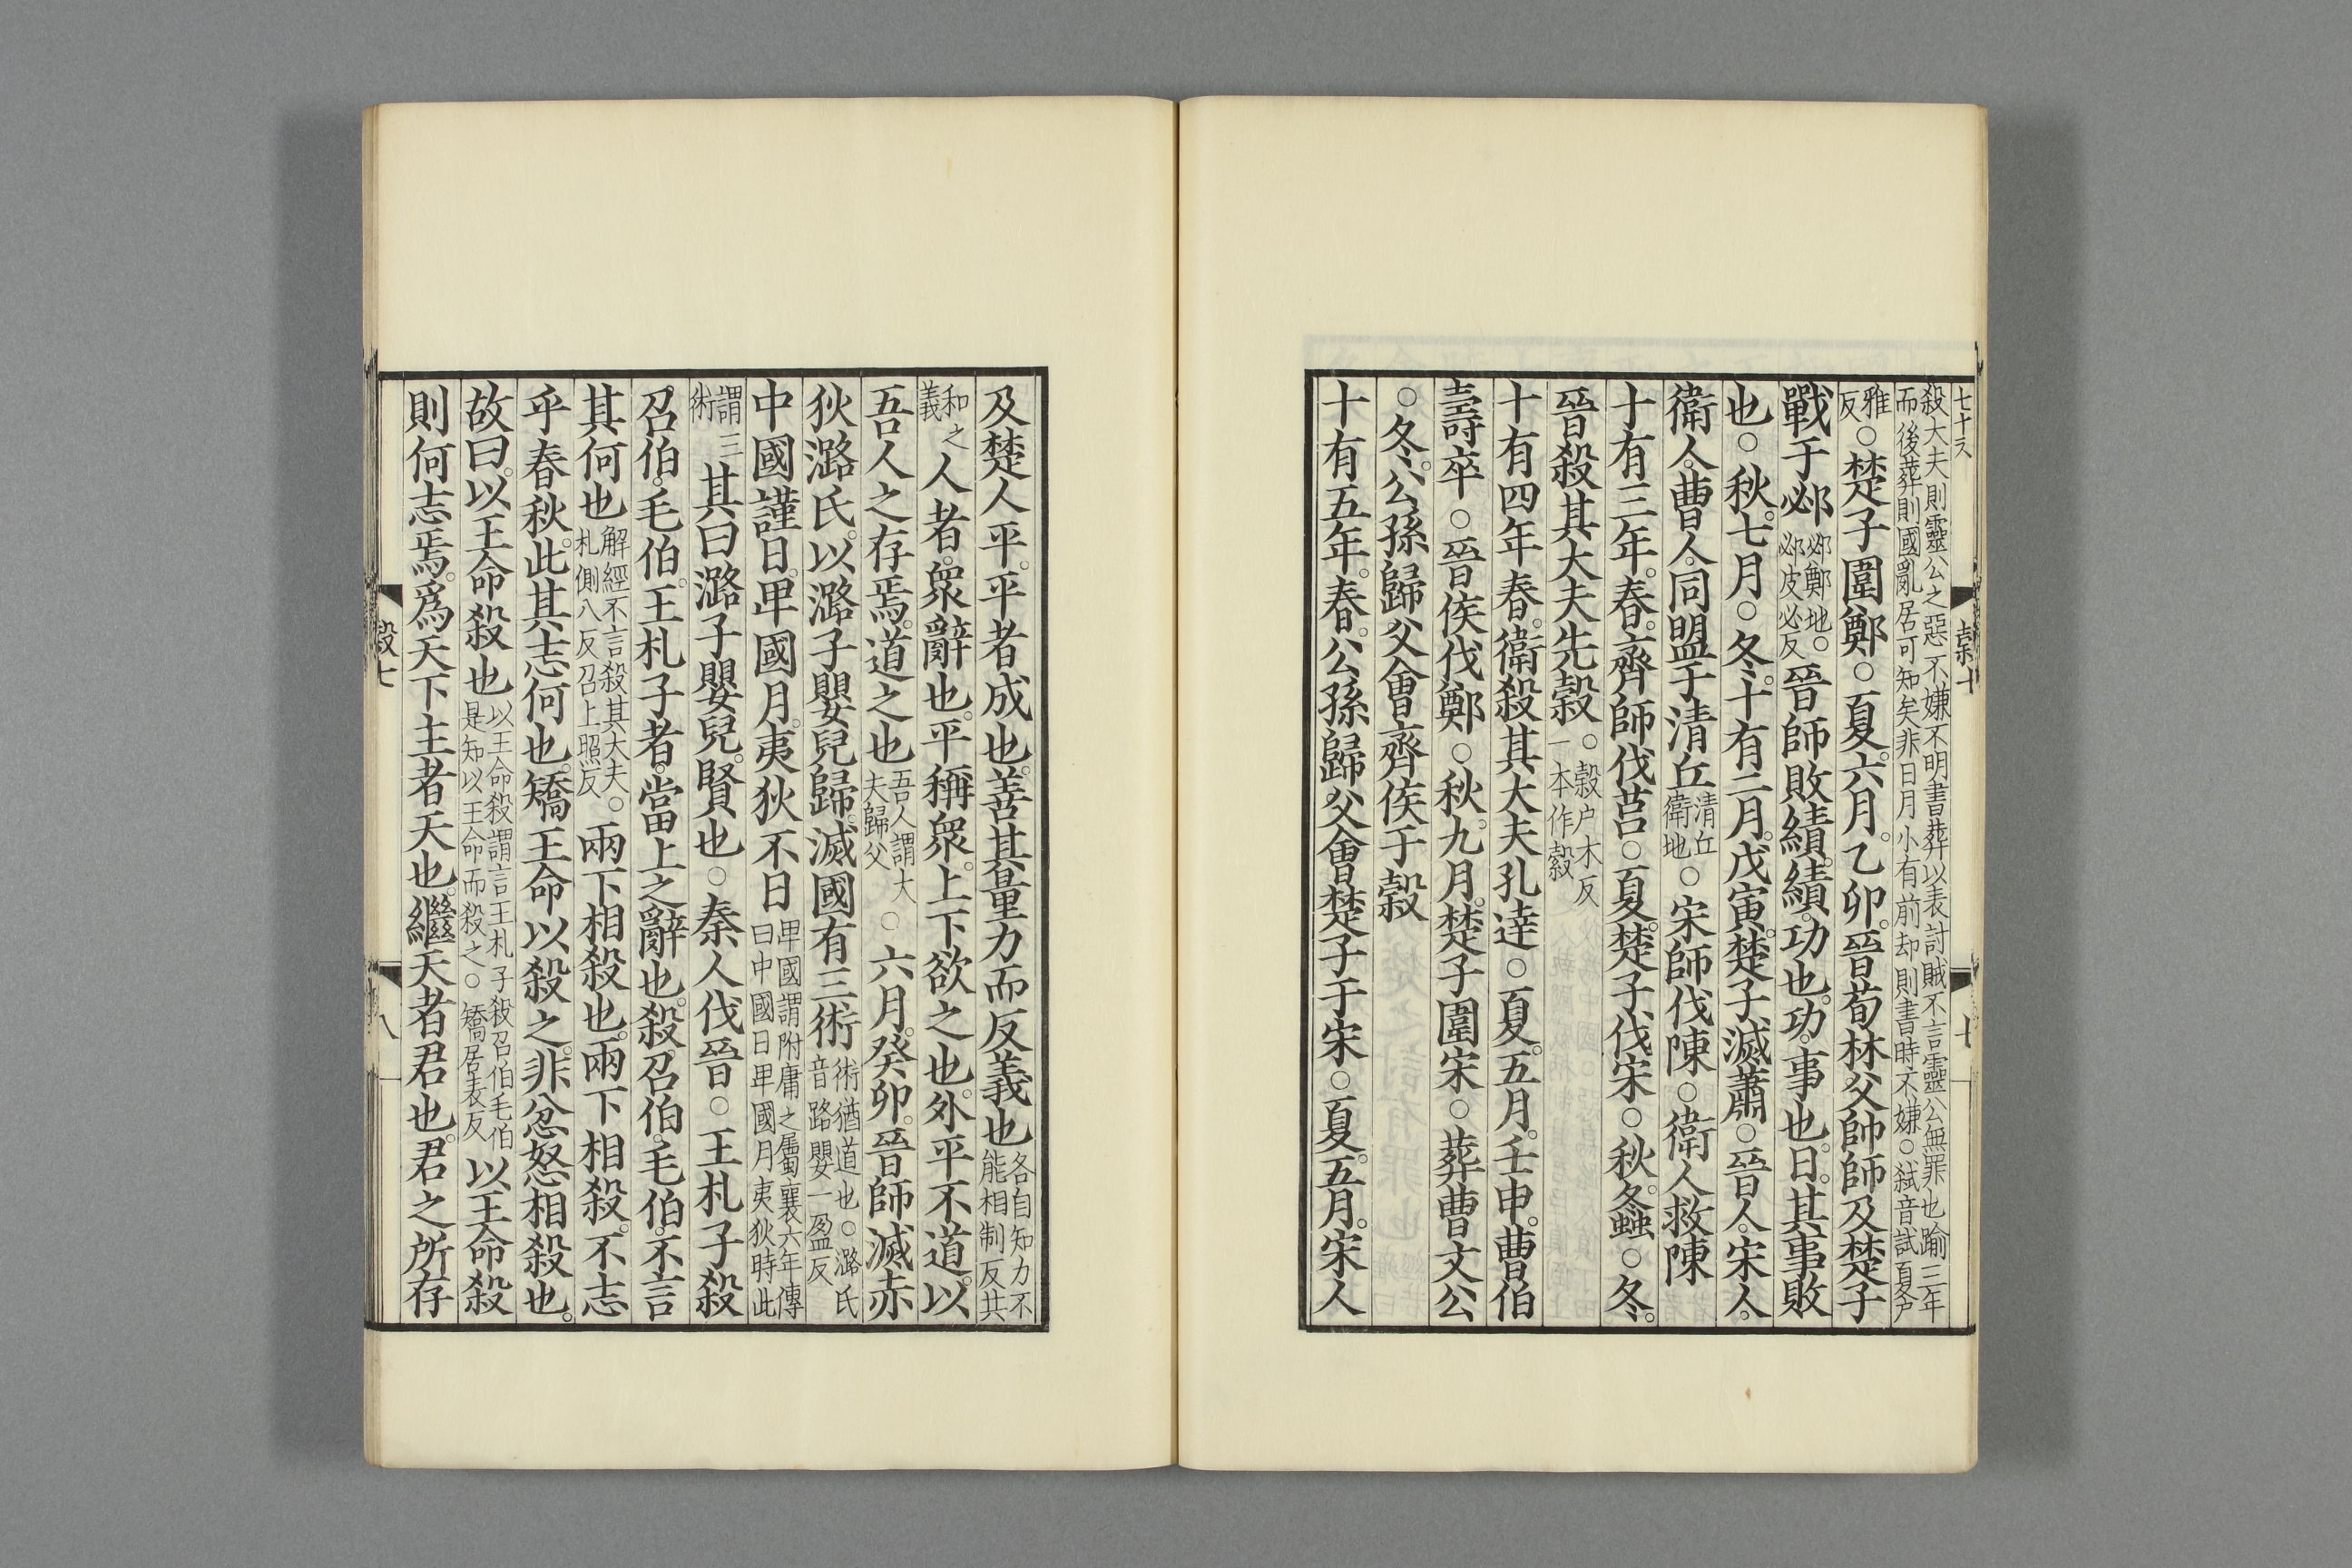 殺大夫則靈公之惡不嫌不明書葬以表討賊不言靈公無罪也踰三年
而後葬則國亂居可知矣非日月小有前却則書時不嫌○弑音試夏戶
雅反○楚子圍鄭○夏六月乙卯晉荀林父帥師及楚子
戰于邲邲鄭地○邲皮必反晉師敗績績功也功事也日其事敗
也○秋七月○冬十有二月戊寅楚子滅蕭○晉人宋人
衛人曹人同盟于清丘清丘衛地○宋師伐陳○衛人救陳
十有三年春齊師伐莒○夏楚子伐宋○秋螽○冬
晉殺其大夫先縠○縠户木反一本作縠
十有四年春衛殺其大夫孔達○夏五月壬申曹伯
壽卒○晉侯伐鄭○秋九月楚子圍宋○葬曹文公
○冬公孫歸父會齊侯于穀
十有五年春公孫歸父會楚子于宋○夏五月宋人
及楚人平平者成也善其量力而反義也各自知力不能相制反共
和之義人者衆辭也平稱衆上下欲之也外平不道以
吾人之存焉道之也吾人謂大夫歸父○六月癸卯晉師滅赤
狄潞氏以潞子嬰兒歸滅國有三術術猶道也○潞氏音路嬰一盈反
中國謹日卑國月夷狄不日卑國謂附庸之屬襄六年傳曰中國日卑國月夷狄時此
謂三術其曰潞子嬰兒賢也○秦人伐晉○王札子殺
召伯毛伯王札子者當上之辭也殺召伯毛伯不言
其何也解經不言殺其大夫○札側八反召上照反兩下相殺也兩下相殺不志
乎春秋此其志何也矯王命以殺之非忿怒相殺也
故曰以王命殺也以王命殺謂言王札子殺召伯毛伯是知以王命而殺之○矯居表反以王命殺
則何志焉爲天下主者天也繼天者君也君之所存
穀七
八